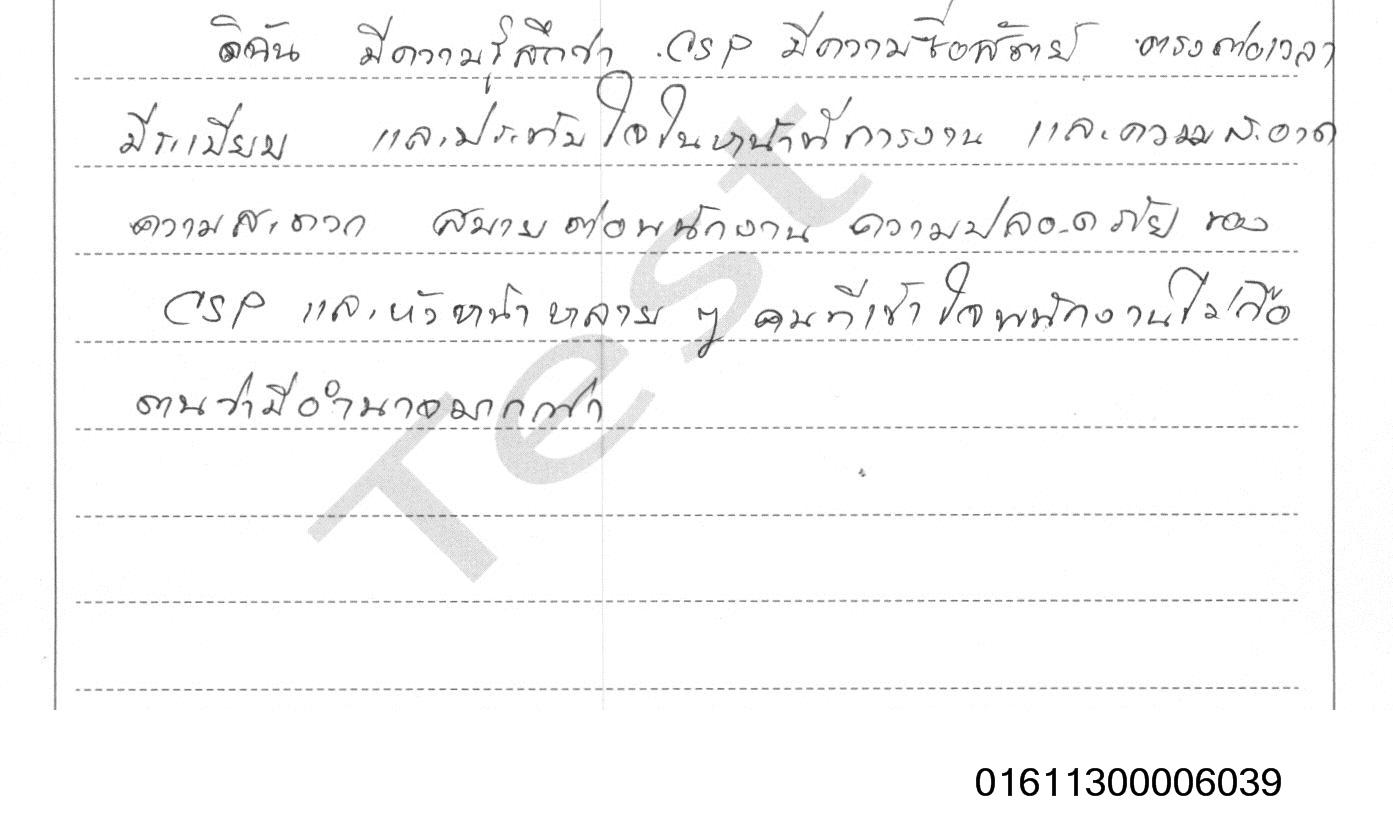 ดิฉัน มีความรู้สึกว่า CSP มีความซื่อสัตย์ ตรงต่อเวลา
มีระเบียบ และประทับใจในหน้าที่การงาน และความสะอาด
ความสะดวก สบายต่อพนักงาน ความปลอดภัย ของ
CSP และหัวหน้าหลาย ๆ คนที่เข้าใจพนักงานไม่ถือ
ตนว่ามีอำนาจมากกว่า
Test
01611300006039